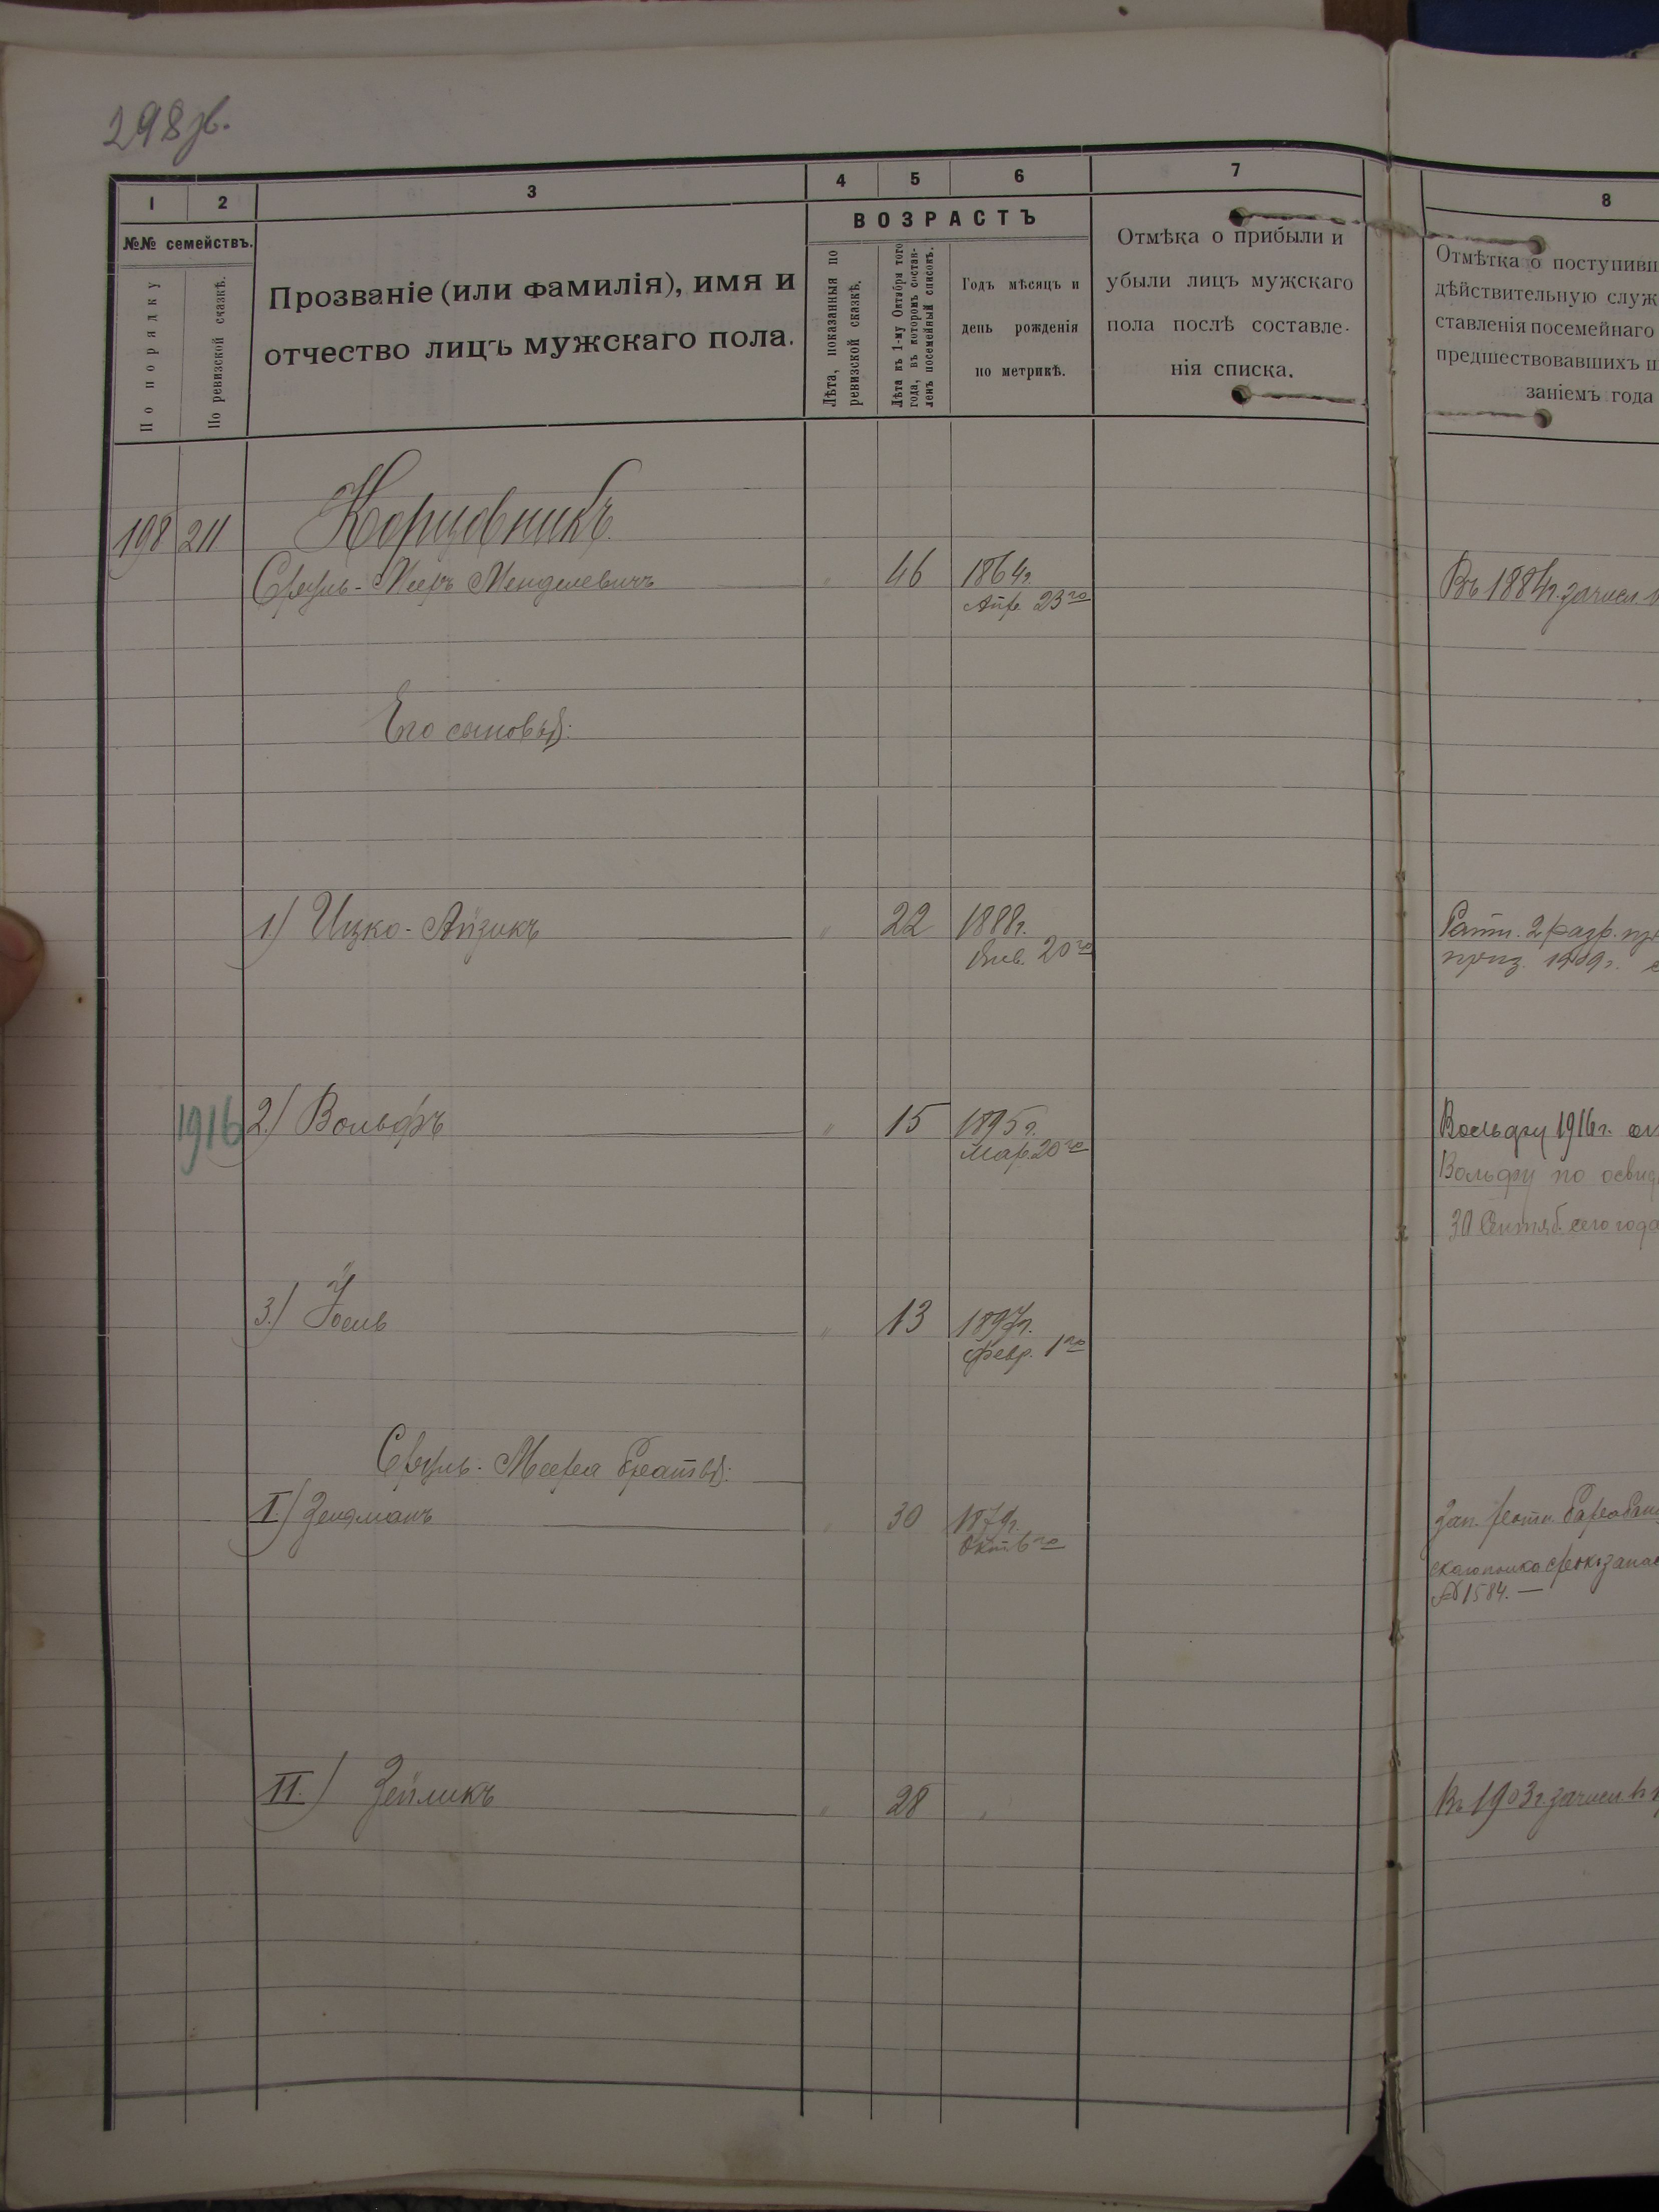 298 зв.
1 2 3 4 5 6 7 8
№№ семействъ.
По порядку
По ревизской сказкѣ.
Прозваніе (или фамилія), имя и
отчество лицъ мужскаго пола.
ВОЗРАСТЪ
Лѣта, показанныя по
ревизской сказкѣ.
Лѣта къ 1-му Октября того
года, въ которомъ состав-
ленъ посемейный списокъ.
Годъ мѣсяцъ и
день рожденія
по метрикѣ.
Отмѣка о прибыли и
убыли лицъ мужскаго
пола послѣ составле-
нія списка.
Отмѣтка о поступивш
дѣйствительную служ
ставленія посемейнаго
предшествовавшихъ
заніемъ года
198 211
Сруль-Мееръ Менделевичъ 46 1864г. Въ 1884г. зачисл.
Апр. 23го
Его сыновья:
1) Ицко-Айзикъ 22 1888г. Ратн. 2 разр.
Янв. 20го 1909г.
1916 2) Вольфъ 15 1895г. Вольфу 1916г.
Мар. 20го Вольфу по освид
30 Сентяб. сего года
3) Іосль 13 1897г.
Февр. 1го
Сруль-Меера братья:
I) Зельманъ 30 1879г. Зап.
Окт. 6го
№ 1584. —
II.) Зейликъ 28 " Въ 1903г. зачисл. въ